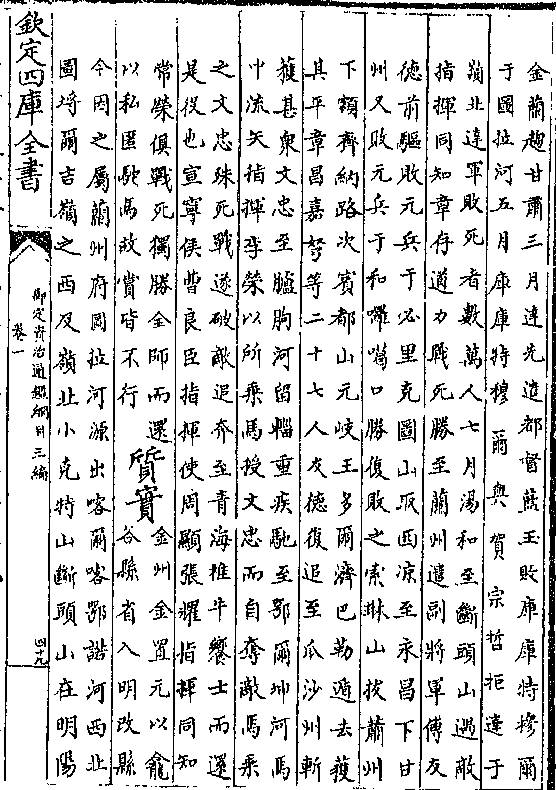 金蘭趨甘肅三月達先遣都督藍玉敗庫庫特穆爾
于圖拉河五月庫庫特穆爾與賀宗哲拒達于
嶺北達軍敗死者數萬人七月湯和至斷頭山遇敵
指揮同知章存道力戰死勝至蘭州遣副將軍傅友
德前驅敗元兵于必里克圖山取西涼至永昌下甘
州又敗元兵于和囉噶口勝復敗之索琳山拔肅州
下額齊納路次賓都山元岐王多爾濟巴勒遁去獲
其平章昌嘉努等二十七人友德復追至瓜沙州斬
獲甚衆文忠至臚朐河留輜重疾馳至鄂爾坤河馬
中流矢指揮李榮以所乘馬授文忠而自奪敵馬乘
之文忠殊死戰遂破敵追奔至青海椎牛饗士而還
是役也宣寧侯曹良臣指揮使周顯張耀指揮同知
常榮俱戰死獨勝全師而還
以私匿駝馬故賞皆不行
質實
金州金置元以龕
谷縣省入明改縣
今因之屬蘭州府圖拉河源出喀爾喀鄂諾河西北
圖埒爾吉嶺之西及嶺北小克特山斷頭山在明陽
欽定四庫全書
御定資治通鑑綱目三編
卷一
四十九